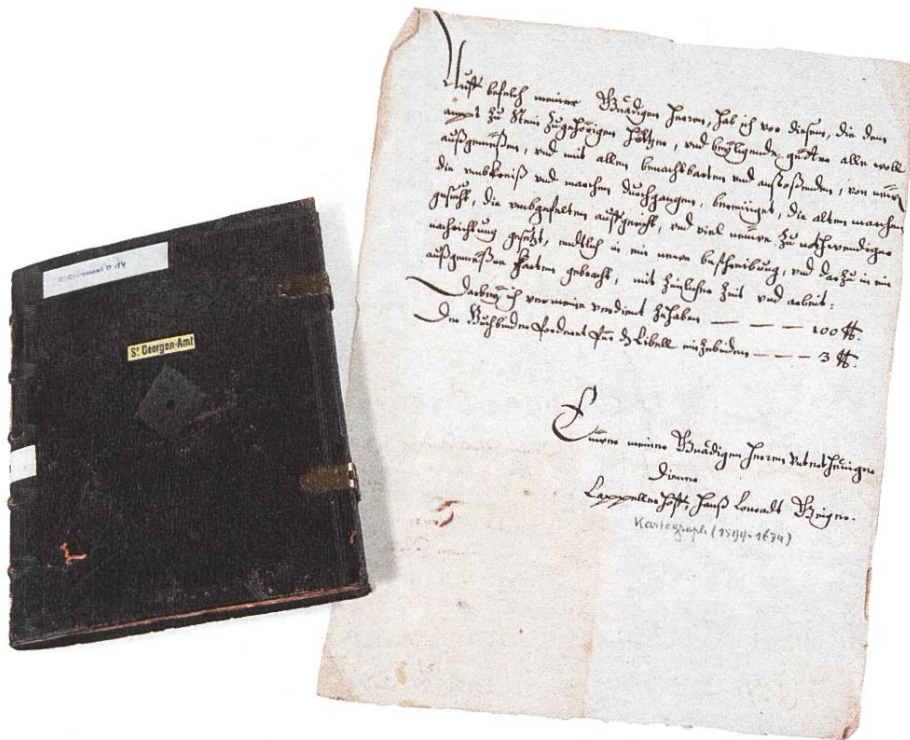 St Georgen-Amt
Auff befelch meiner Gnädigen herren, hab ich vor diesem, die dem
ampt zu Stein zugehörigen höltzer, und beÿligende gütter alle woll
außgemeßen, und mit allen benachbarten und anstoßenden, von
die umbkreiß und marchen durchgangen, bereiniget, die alten marchen
gesucht, die umbgefalten auffgericht, und viel neuwe zu nothwendiger
nachrichtung gesetzt, endtlich in ein neuwe beschreibung, und darzu in ein
außgemeßne Karten gebracht, mit zimlicher zeit und arbeit:
Darbeÿ ich vermeine verdient zehaben — — — — 100 ℔.
Der Buchbinder forderet für dz Libell einzebinden — — — 3 ℔.
Euwer meiner Gnädigen herren
diener
Cappellerhoff, Hanß Conradt Geiger.
Kartograph (1599-1674)